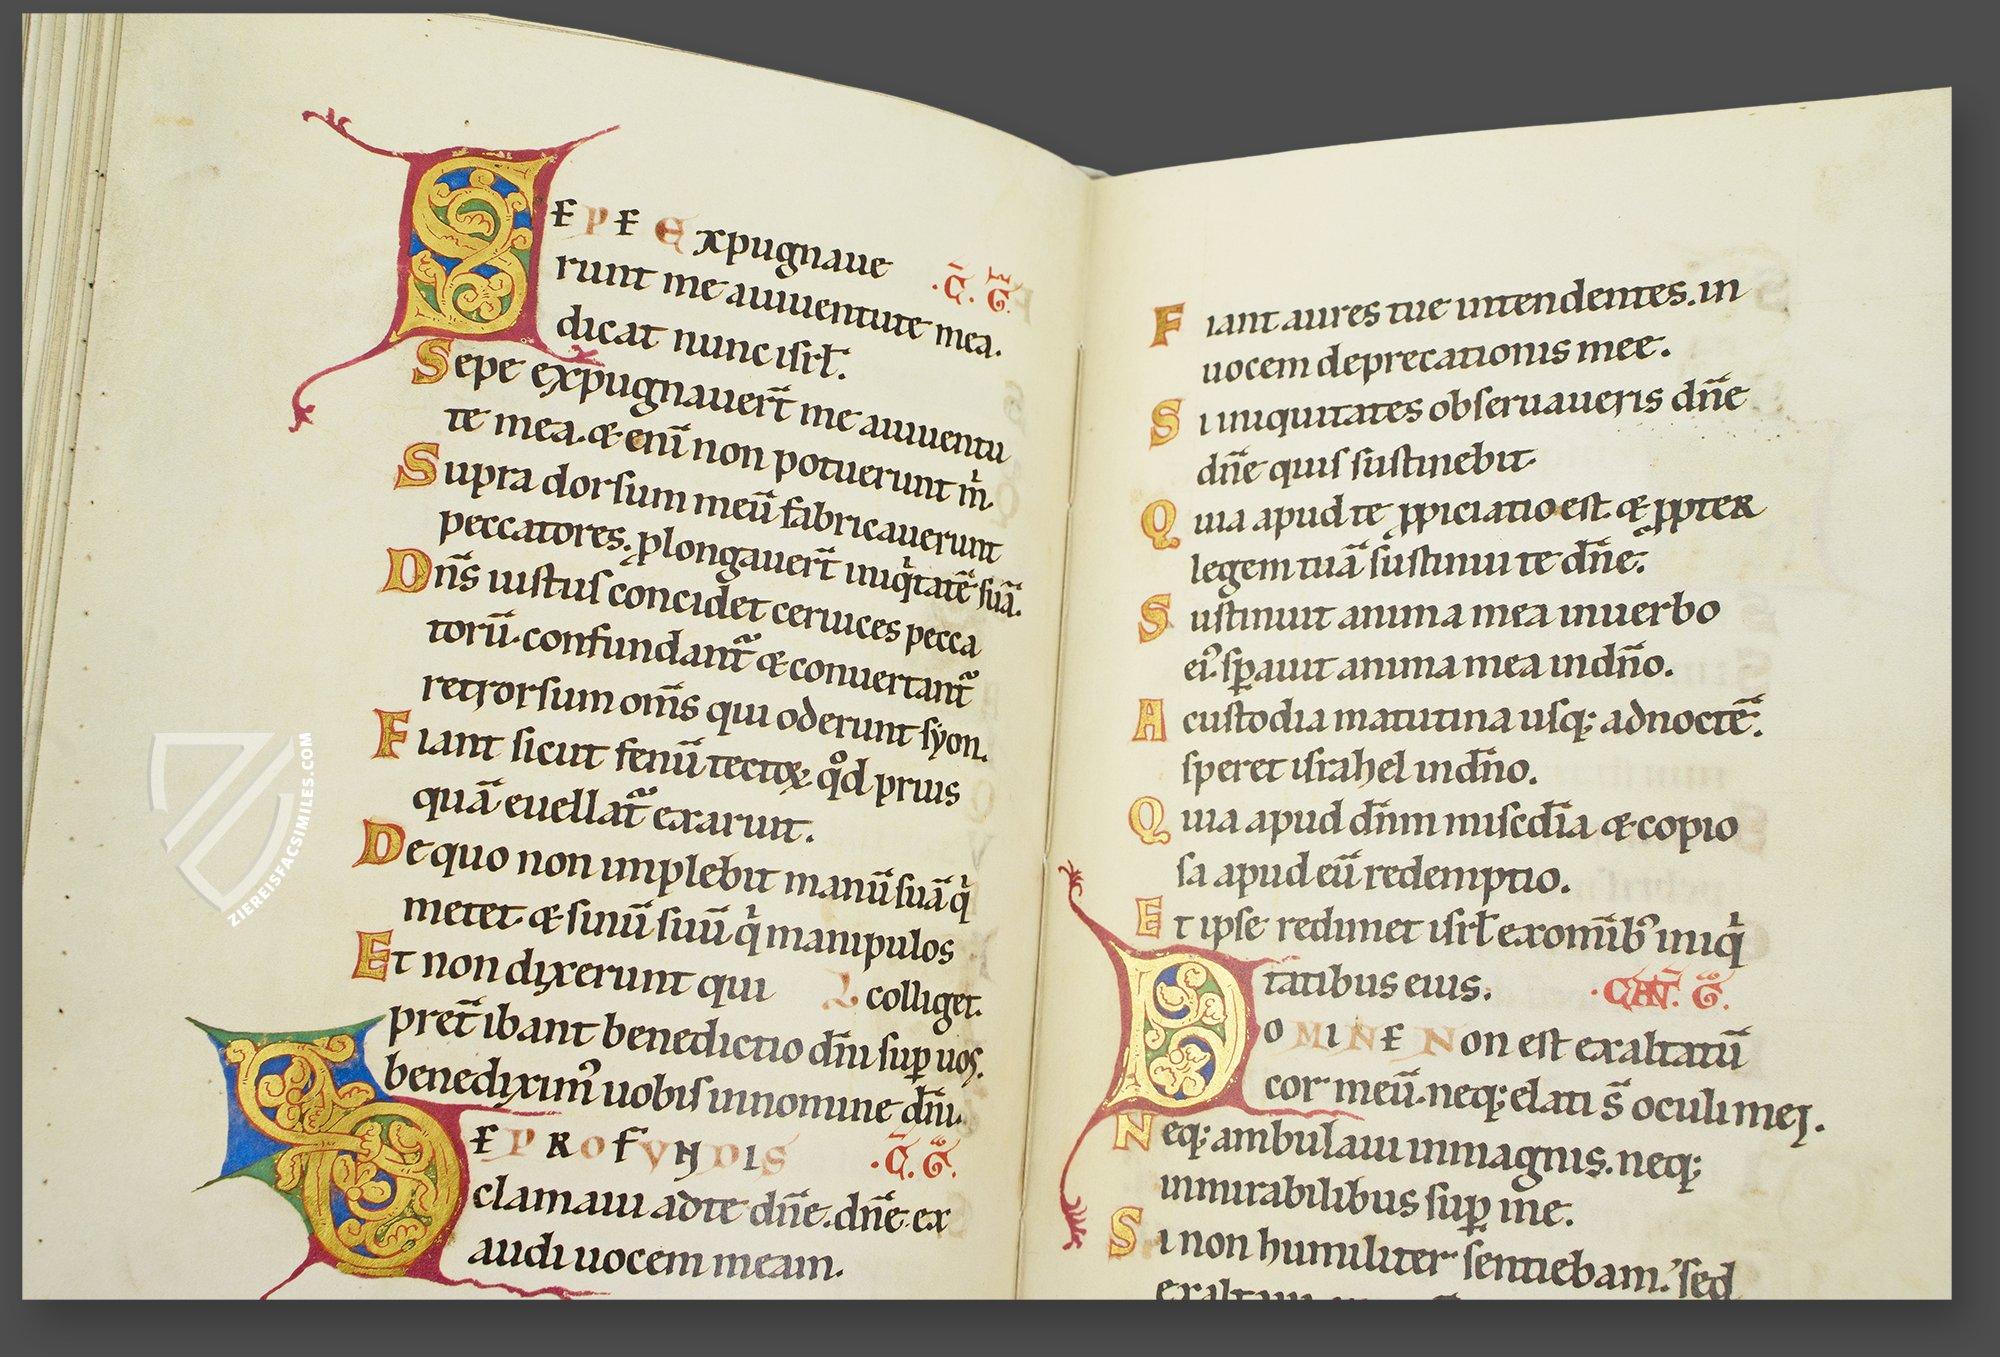 SEPE Expugnaue
runt me a iuuentute mea. .C̄. G̅.
dicat nunc isrł.
Sepe expugnauer̄t me a iuuentu
te mea. & eni̅ non potuerunt m̍.
Supra dorsum meu̅ fabricauerunt
peccatores. ꝓlongauer̄t iniq̍tate̅ sua̅.
Dn̅s iustus concidet ceruices pecca
toru̅. confundant̃ & conuertant̃
retrorsum om̅s qui oderunt syon.
Fiant sicut fenu̅ tectoꝝ. qͦd prius
qua̅ euellat̃ exaruit.
De quo non implebit manu̅ sua̅ q̍
metet & sinu̅ suu̅ q̍ manipulos
Et non dixerunt qui colliget.
preter̄ibant benedictio dn̅i suꝑ uos.
benediximꝰ uobis in nomine dn̅i.
DE PROFVNDIS .C̄. G̅.
clamaui ad te dn̅e. dn̅e ex
audi uocem meam.
Fiant aures tue intendentes. in
uocem deprecationis mee.
Si iniquitates obseruaueris dn̅e
dn̅e quis sustinebit.
Quia apud te ꝓpiciatio est. & ꝓpter
legem tua̅ sustinui te dn̅e.
Sustinuit anima mea in uerbo
eiꝰ. sꝑauit anima mea in dn̅o.
A custodia matutina usq; ad nocte̅.
speret israhel in dn̅o.
Quia apud dn̅m misc̅dia & copio
sa apud eu̅ redemptio.
Et ipse redimet isrł ex om̅ibꝰ iniq̍
tatibus eius. .CAN̅T. G̅.
DOMINE Non est exaltatu̅
cor meu̅. neq; elati s̅ oculi mei.
Neq; ambulaui in magnis. neq;
in mirabilibus suꝑ me.
Si non humiliter sentiebam. sed
exaltaui
ZIEREISFACSIMILES.COM